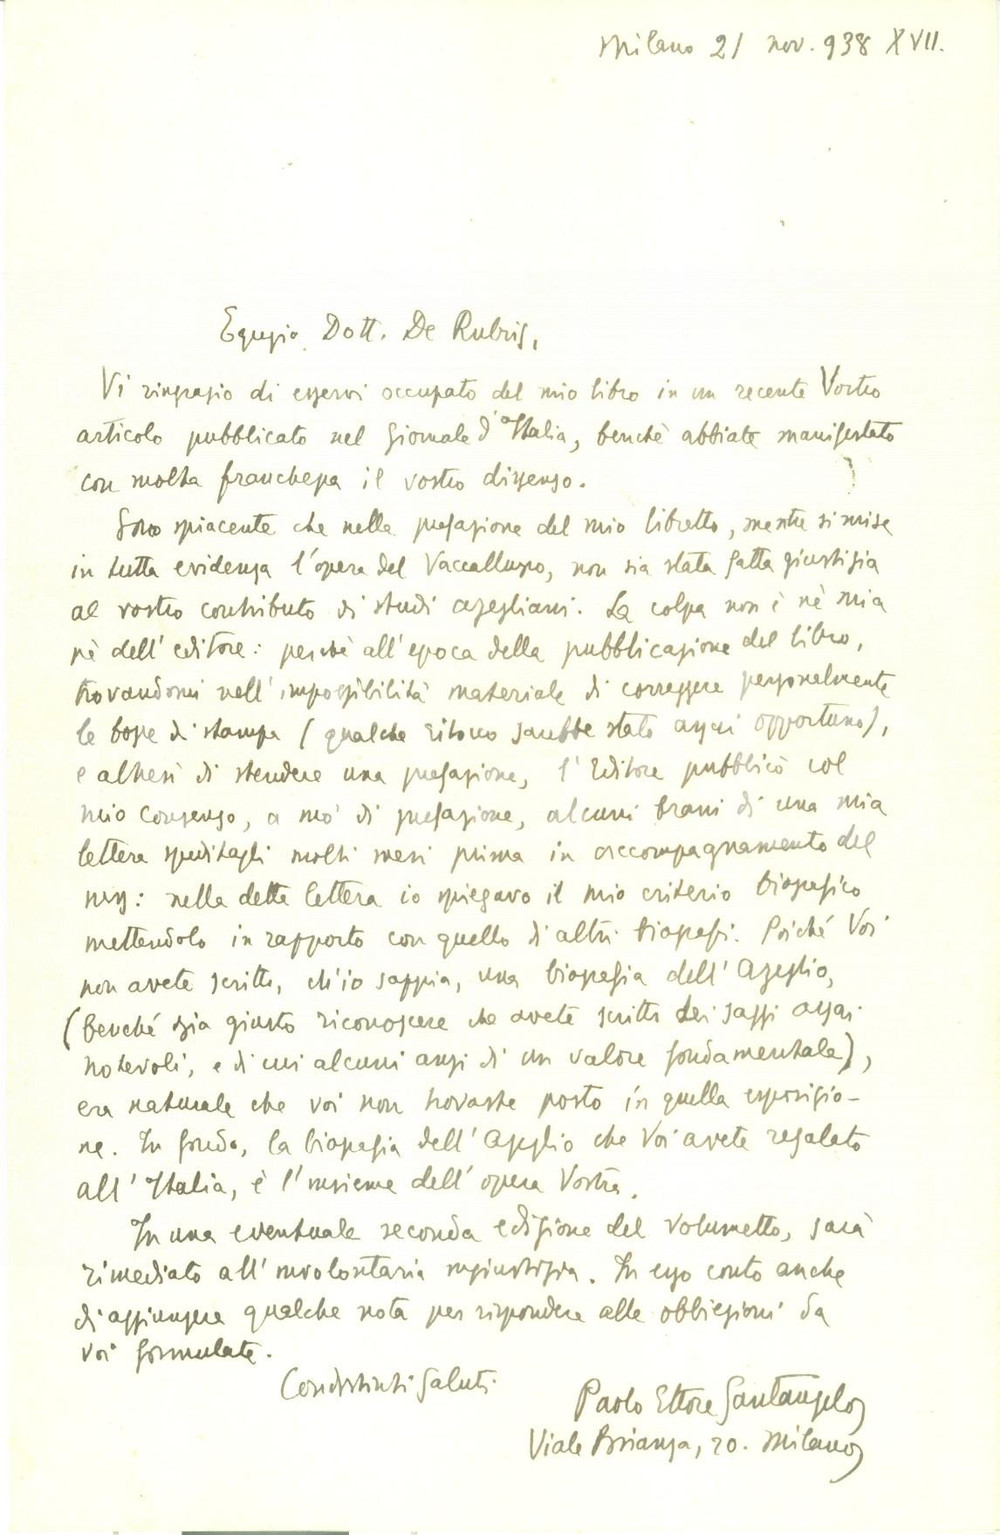 Milano 21 nov. 938 XVII.
Egregio Dott. De Rubris,
Vi ringrazio di esservi occupato del mio libro in un recente Vostro
articolo pubblicato nel Giornale d'Italia, benchè abbiate manifestato
con molta franchezza il vostro dissenso.
Sono spiacente che nella prefazione del mio libretto, mentre si mise
in tutta evidenza l'opera del Vaccalluzzo, non sia stata fatta giustizia
al vostro contributo di studi azegliani. La colpa non è nè mia
nè dell'editore: perchè all'epoca della pubblicazione del libro,
trovandomi nell'impossibilità materiale di correggere personalmente
le bozze di stampa (qualche ritocco sarebbe stato assai opportuno),
e altresì di stendere una prefazione, l'Editore pubblicò col
mio consenso, a mo' di prefazione, alcuni brani di una mia
lettera speditagli molti mesi prima in accompagnamento del
ms: nella detta lettera io spiegavo il mio criterio biografico
mettendolo in rapporto con quello di altri biografi. Poiché Voi
non avete scritto, ch'io sappia, una biografia dell'Azeglio,
(benché sia giusto riconoscere che avete scritto dei saggi assai
notevoli, e di cui alcuni anzi di un valore fondamentale),
era naturale che voi non trovaste posto in quella esposizio-
ne. In fondo, la biografia dell'Azeglio che Voi avete regalato
all'Italia, è l'insieme dell'opera Vostra.
In una eventuale seconda edizione del volumetto, sarà
rimediato all'involontaria ingiustizia. In essa conto anche
di aggiungere qualche nota per rispondere alle obbiezioni da
voi formulate.
Condistinti Saluti
Paolo Ettore Santangelo
Viale Brianza, 20. Milano